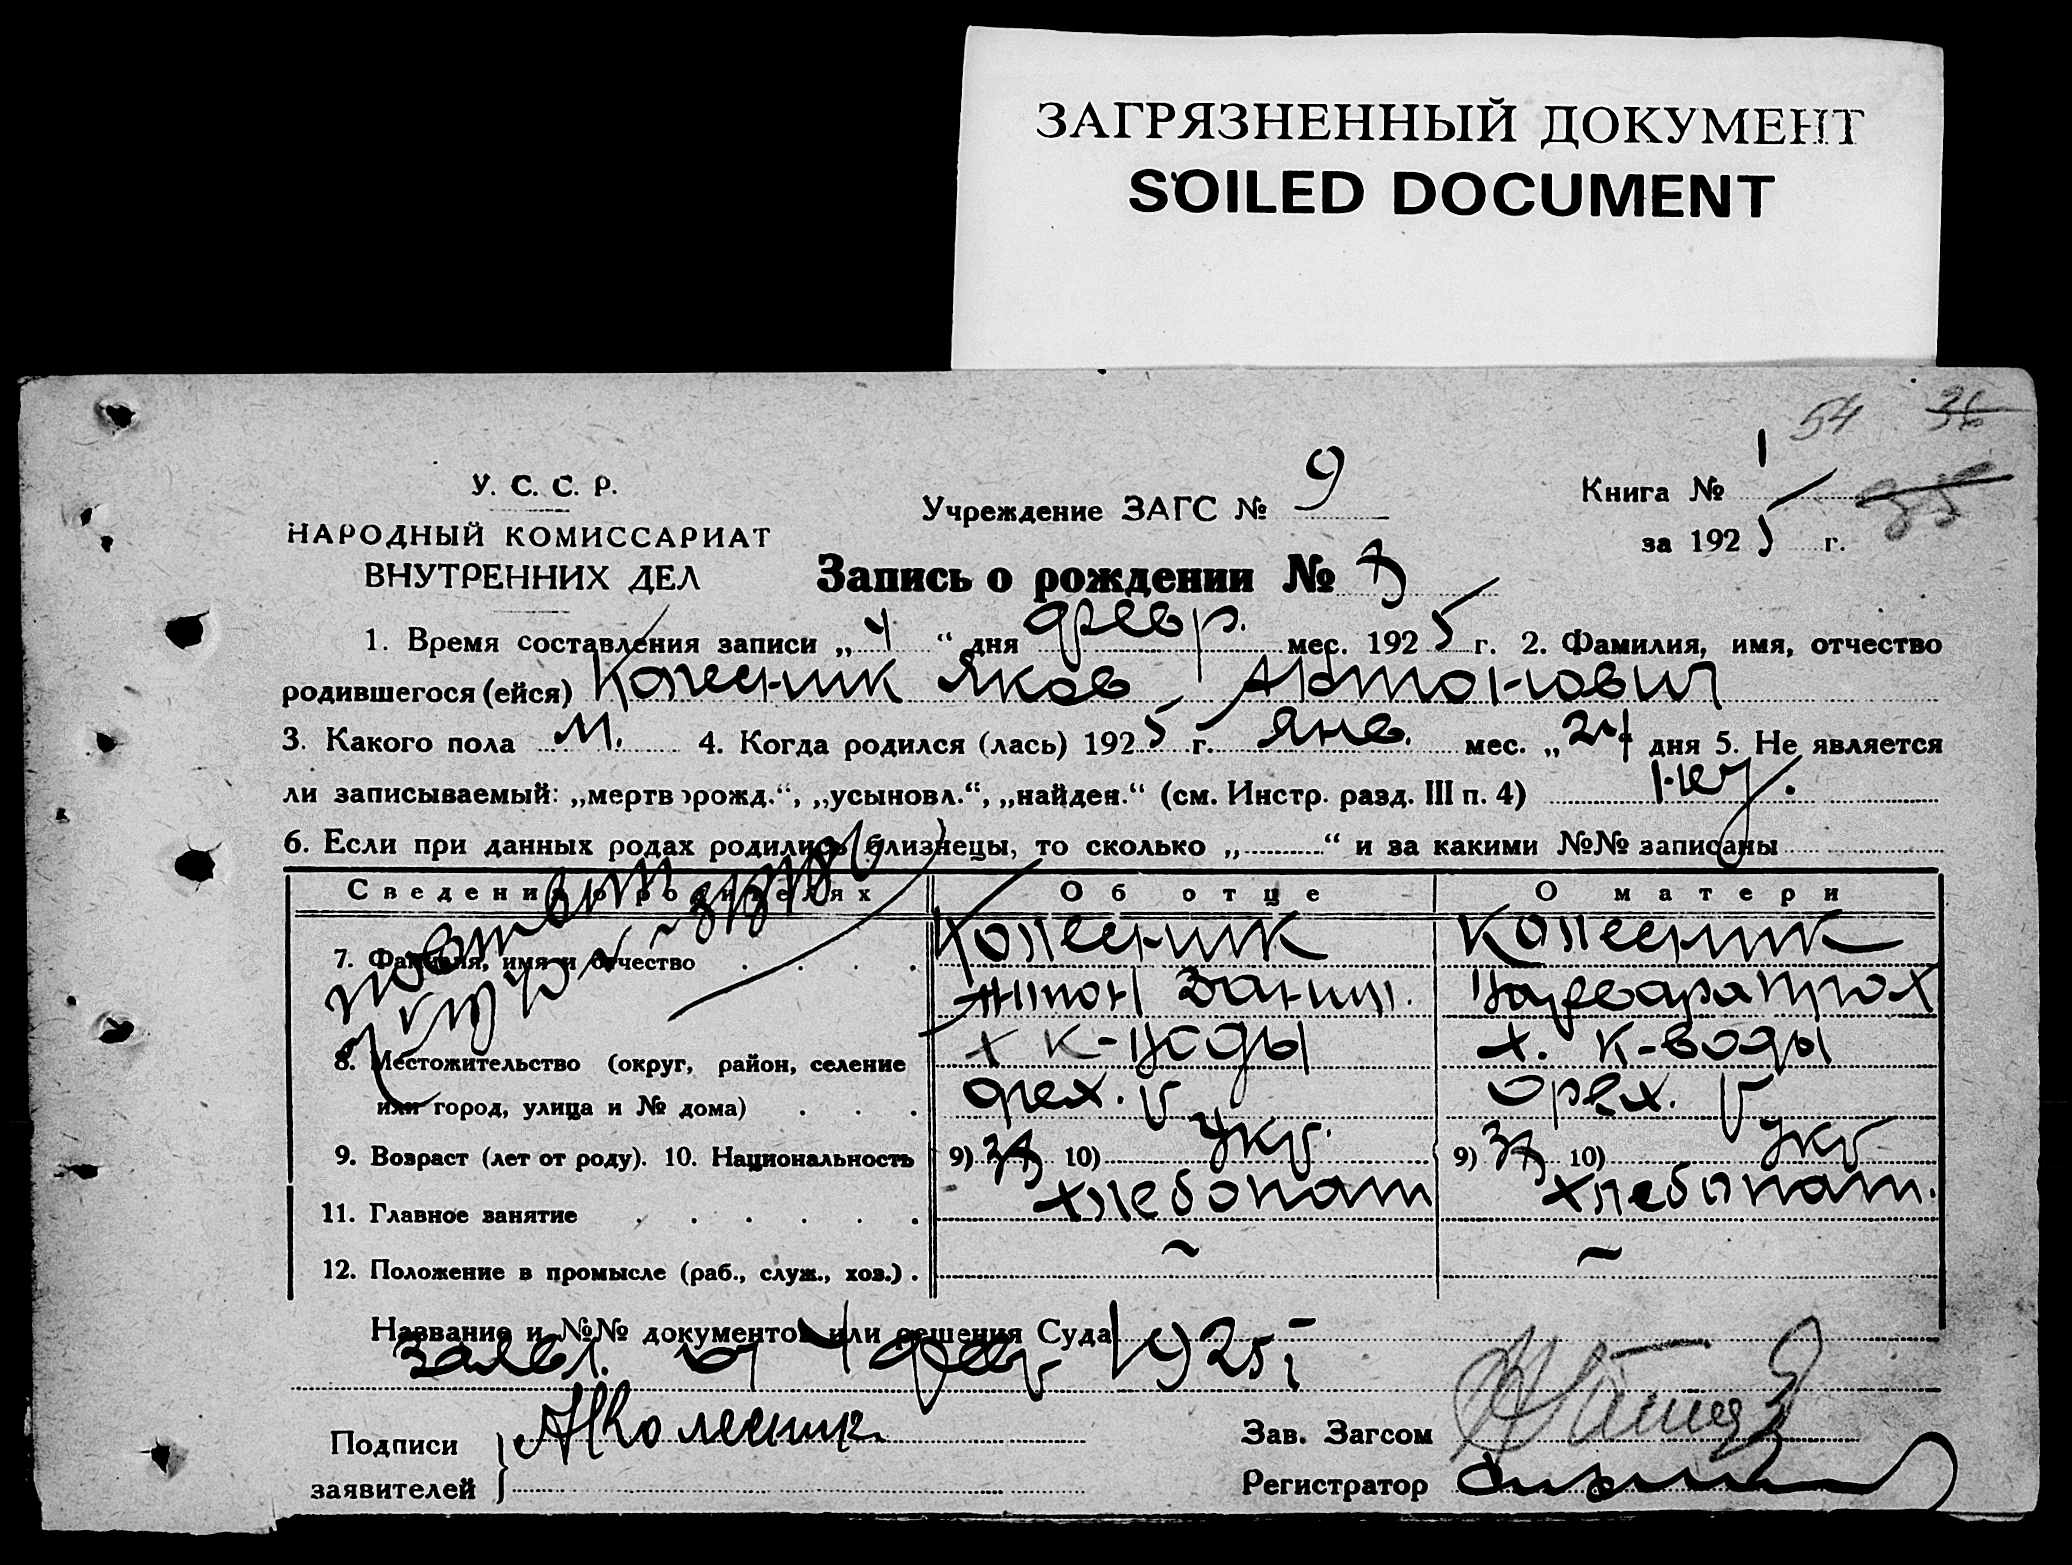 ЗАГРЯЗНЕННЫЙ ДОКУМЕНТ
SOILED DOCUMENT
54 36
35
У. С. С. Р.
НАРОДНЫЙ КОМИССАРИАТ
ВНУТРЕННИХ ДЕЛ
Учреждение ЗАГС № 9
Книга № 1
за 1925 г.
Запись о рождении №
1. Время составления записи „4“ дня февр. мес. 1925 г. 2. Фамилия, имя, отчество
родившегося (ейся) Колесник Яков Антонович
3. Какого пола м. 4. Когда родился (лась) 1925 г. янв. мес. „24 дня 5. Не является
ли записываемый: „мертворожд.“, „усыновл.“, „найден.“ (см. Инстр. разд. III п. 4) нет.
6. Если при данных родах родились близнецы, то сколько „ “ и за какими №№ записаны
Сведения о родителях Об отце О матери
7. Фамилия, имя и отчество Колесник Колесник
Антон
8. Местожительство (округ, район, селение х к-воды х. к-воды
или город, улица и № дома) Орех. Орех.
9. Возраст (лет от роду). 10. Национальность 9) 10) укр. 9) 10) укр
11. Главное занятие хлебопаш хлебопаш.
12. Положение в промысле (раб., служ., хоз.) ~ ~
Название и №№ документов или решения Суда
заявл. от 4 февр 1925 г
Подписи АКолесник
заявителей
Зав. Загсом
Регистратор